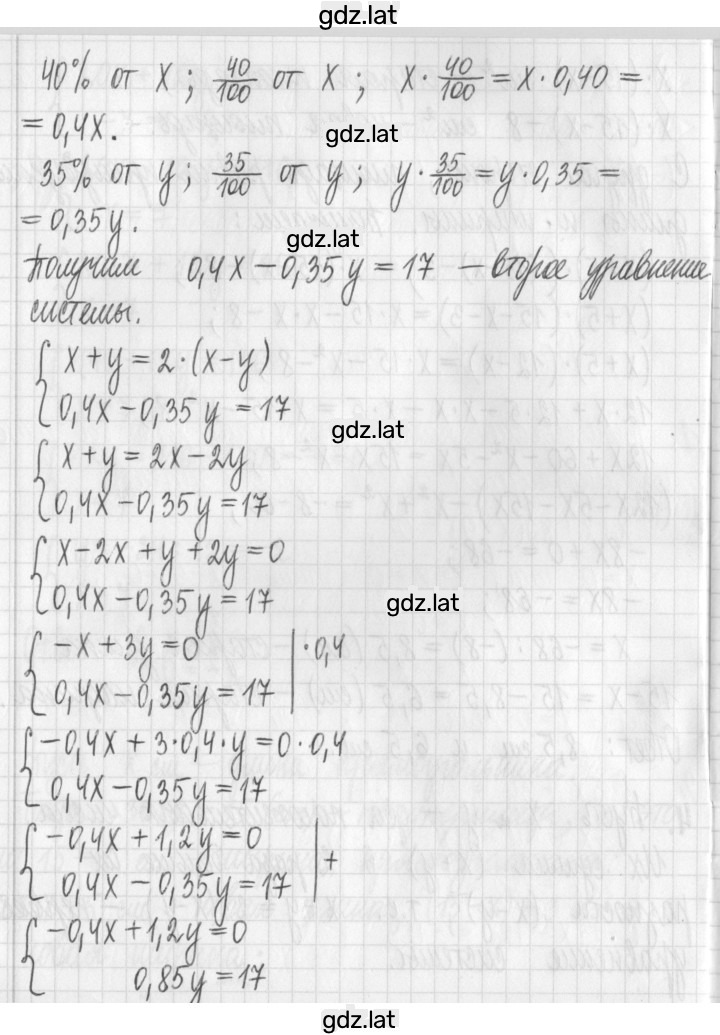 gdz.lat
40% от x; 40/100 от x; x · 40/100 = x · 0,40 =
= 0,4x.
gdz.lat
35% от y; 35/100 от y; y · 35/100 = y · 0,35 =
= 0,35y.
gdz.lat
Получим 0,4x − 0,35y = 17 − второе уравнение
системы.
{ x + y = 2 · (x − y)
0,4x − 0,35y = 17
gdz.lat
{ x + y = 2x − 2y
0,4x − 0,35y = 17
{ x − 2x + y + 2y = 0
0,4x − 0,35y = 17
gdz.lat
{ −x + 3y = 0 | · 0,4
0,4x − 0,35y = 17
{ −0,4x + 3 · 0,4 · y = 0 · 0,4
0,4x − 0,35y = 17
{ −0,4x + 1,2y = 0 | +
0,4x − 0,35y = 17
{ −0,4x + 1,2y = 0
0,85y = 17
gdz.lat